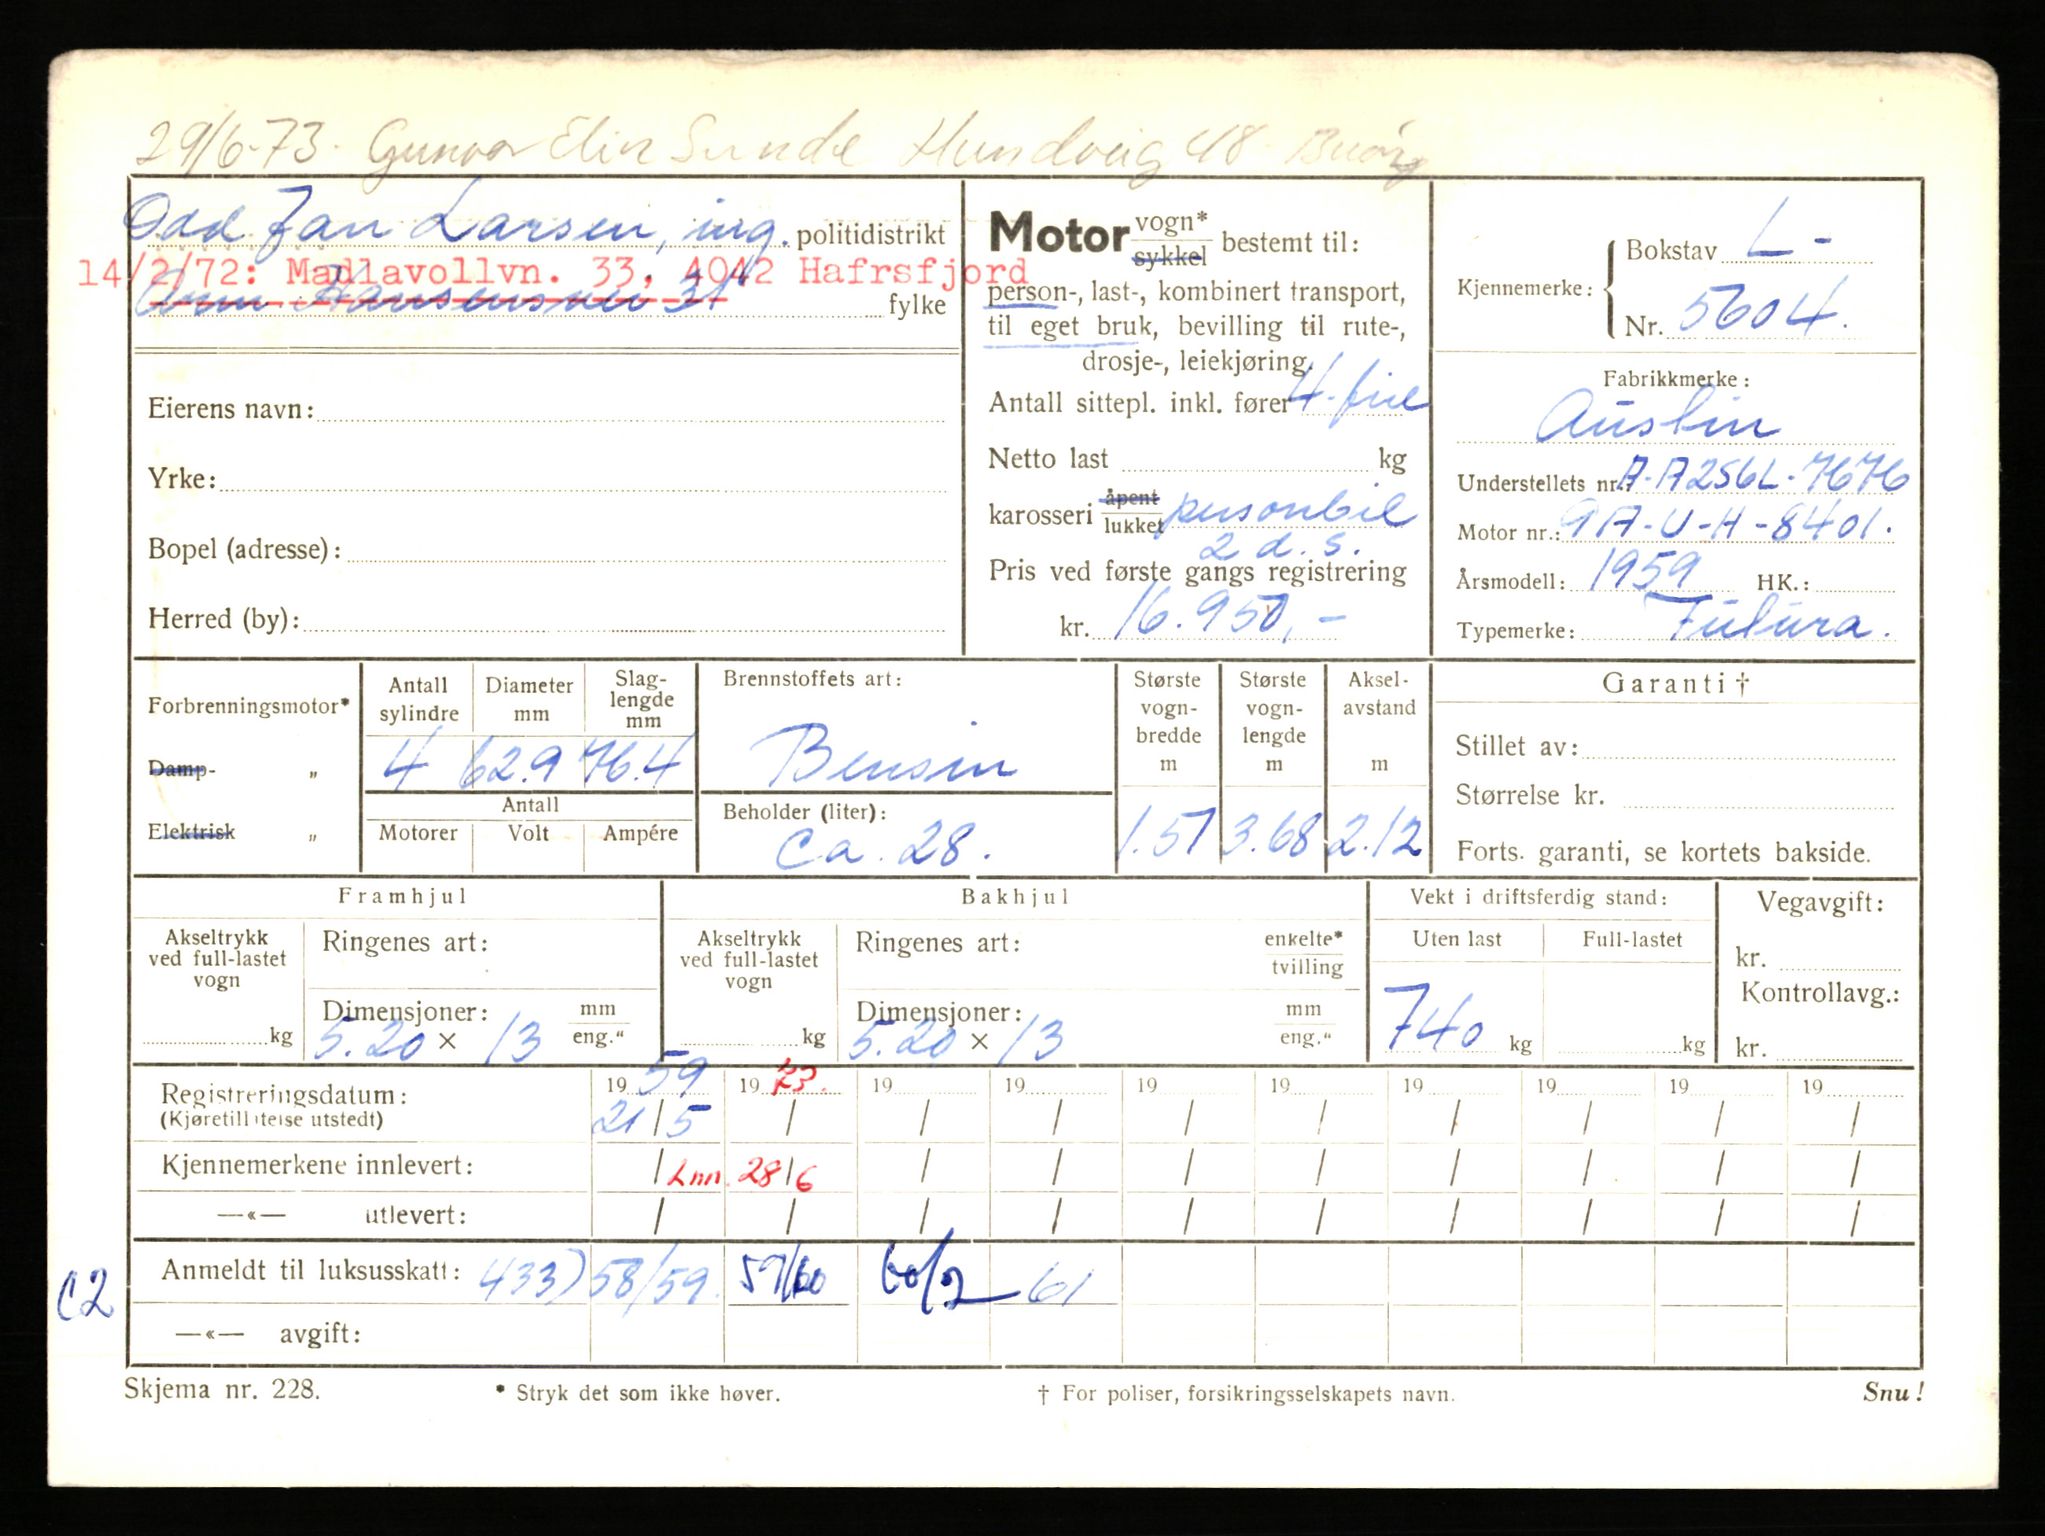 29/6-73. Gunvor Elin Sunde Hundveig 48 Buøy
Odd Jan Larsen, ing. politidistrikt
14/2/72: Madlavollvn. 33, 4042 Hafrsfjord
31 fylke
Eierens navn:
Yrke:
Bopel (adresse):
Herred (by):
Motor vogn* sykkel bestemt til:
person-, last-, kombinert transport,
til eget bruk, bevilling til rute-,
drosje-, leiekjøring.
Antall sittepl. inkl. fører 4-fire
Netto last kg
karosseri åpent lukket personbil
2 d. s.
Pris ved første gangs registrering
kr. 16.950,-
Kjennemerke: Bokstav L-
Nr. 5604.
Fabrikkmerke:
Austin
Understellets nr. A-A2S6L-7676
Motor nr.: 9A-U-H-8401.
Årsmodell: 1959 HK.:
Typemerke: Futura.
Forbrenningsmotor*
Damp- „
Elektrisk „
Antall sylindre Diameter mm Slag-lengde mm
4 62.9 76.4
Antall
Motorer Volt Ampére
Brennstoffets art:
Bensin
Beholder (liter):
ca. 28.
Største vogn-bredde m Største vogn-lengde m Aksel-avstand m
1.57 3.68 2.12
Garanti †
Stillet av:
Størrelse kr.
Forts. garanti, se kortets bakside.
Framhjul
Akseltrykk ved full-lastet vogn kg
Ringenes art:
Dimensjoner: mm
5.20 × 13 eng."
Bakhjul
Akseltrykk ved full-lastet vogn kg
Ringenes art: enkelte* tvilling
Dimensjoner: mm
5.20 × 13 eng."
Vekt i driftsferdig stand:
Uten last Full-lastet
740 kg kg
Vegavgift:
kr.
Kontrollavg.:
kr.
Registreringsdatum: 19 59 19 73. 19 19 19 19 19 19 19 19
(Kjøretillatelse utstedt) 21/5 / / / / / / / / /
Kjennemerkene innlevert: / Inn. 28/6 / / / / / / / /
—«— utlevert: / / / / / / / / / /
Anmeldt til luksusskatt: 433) 58/59. 59/60 60/2 - 61
C2
—«— avgift:
Skjema nr. 228. * Stryk det som ikke høver. † For poliser, forsikringsselskapets navn. Snu!